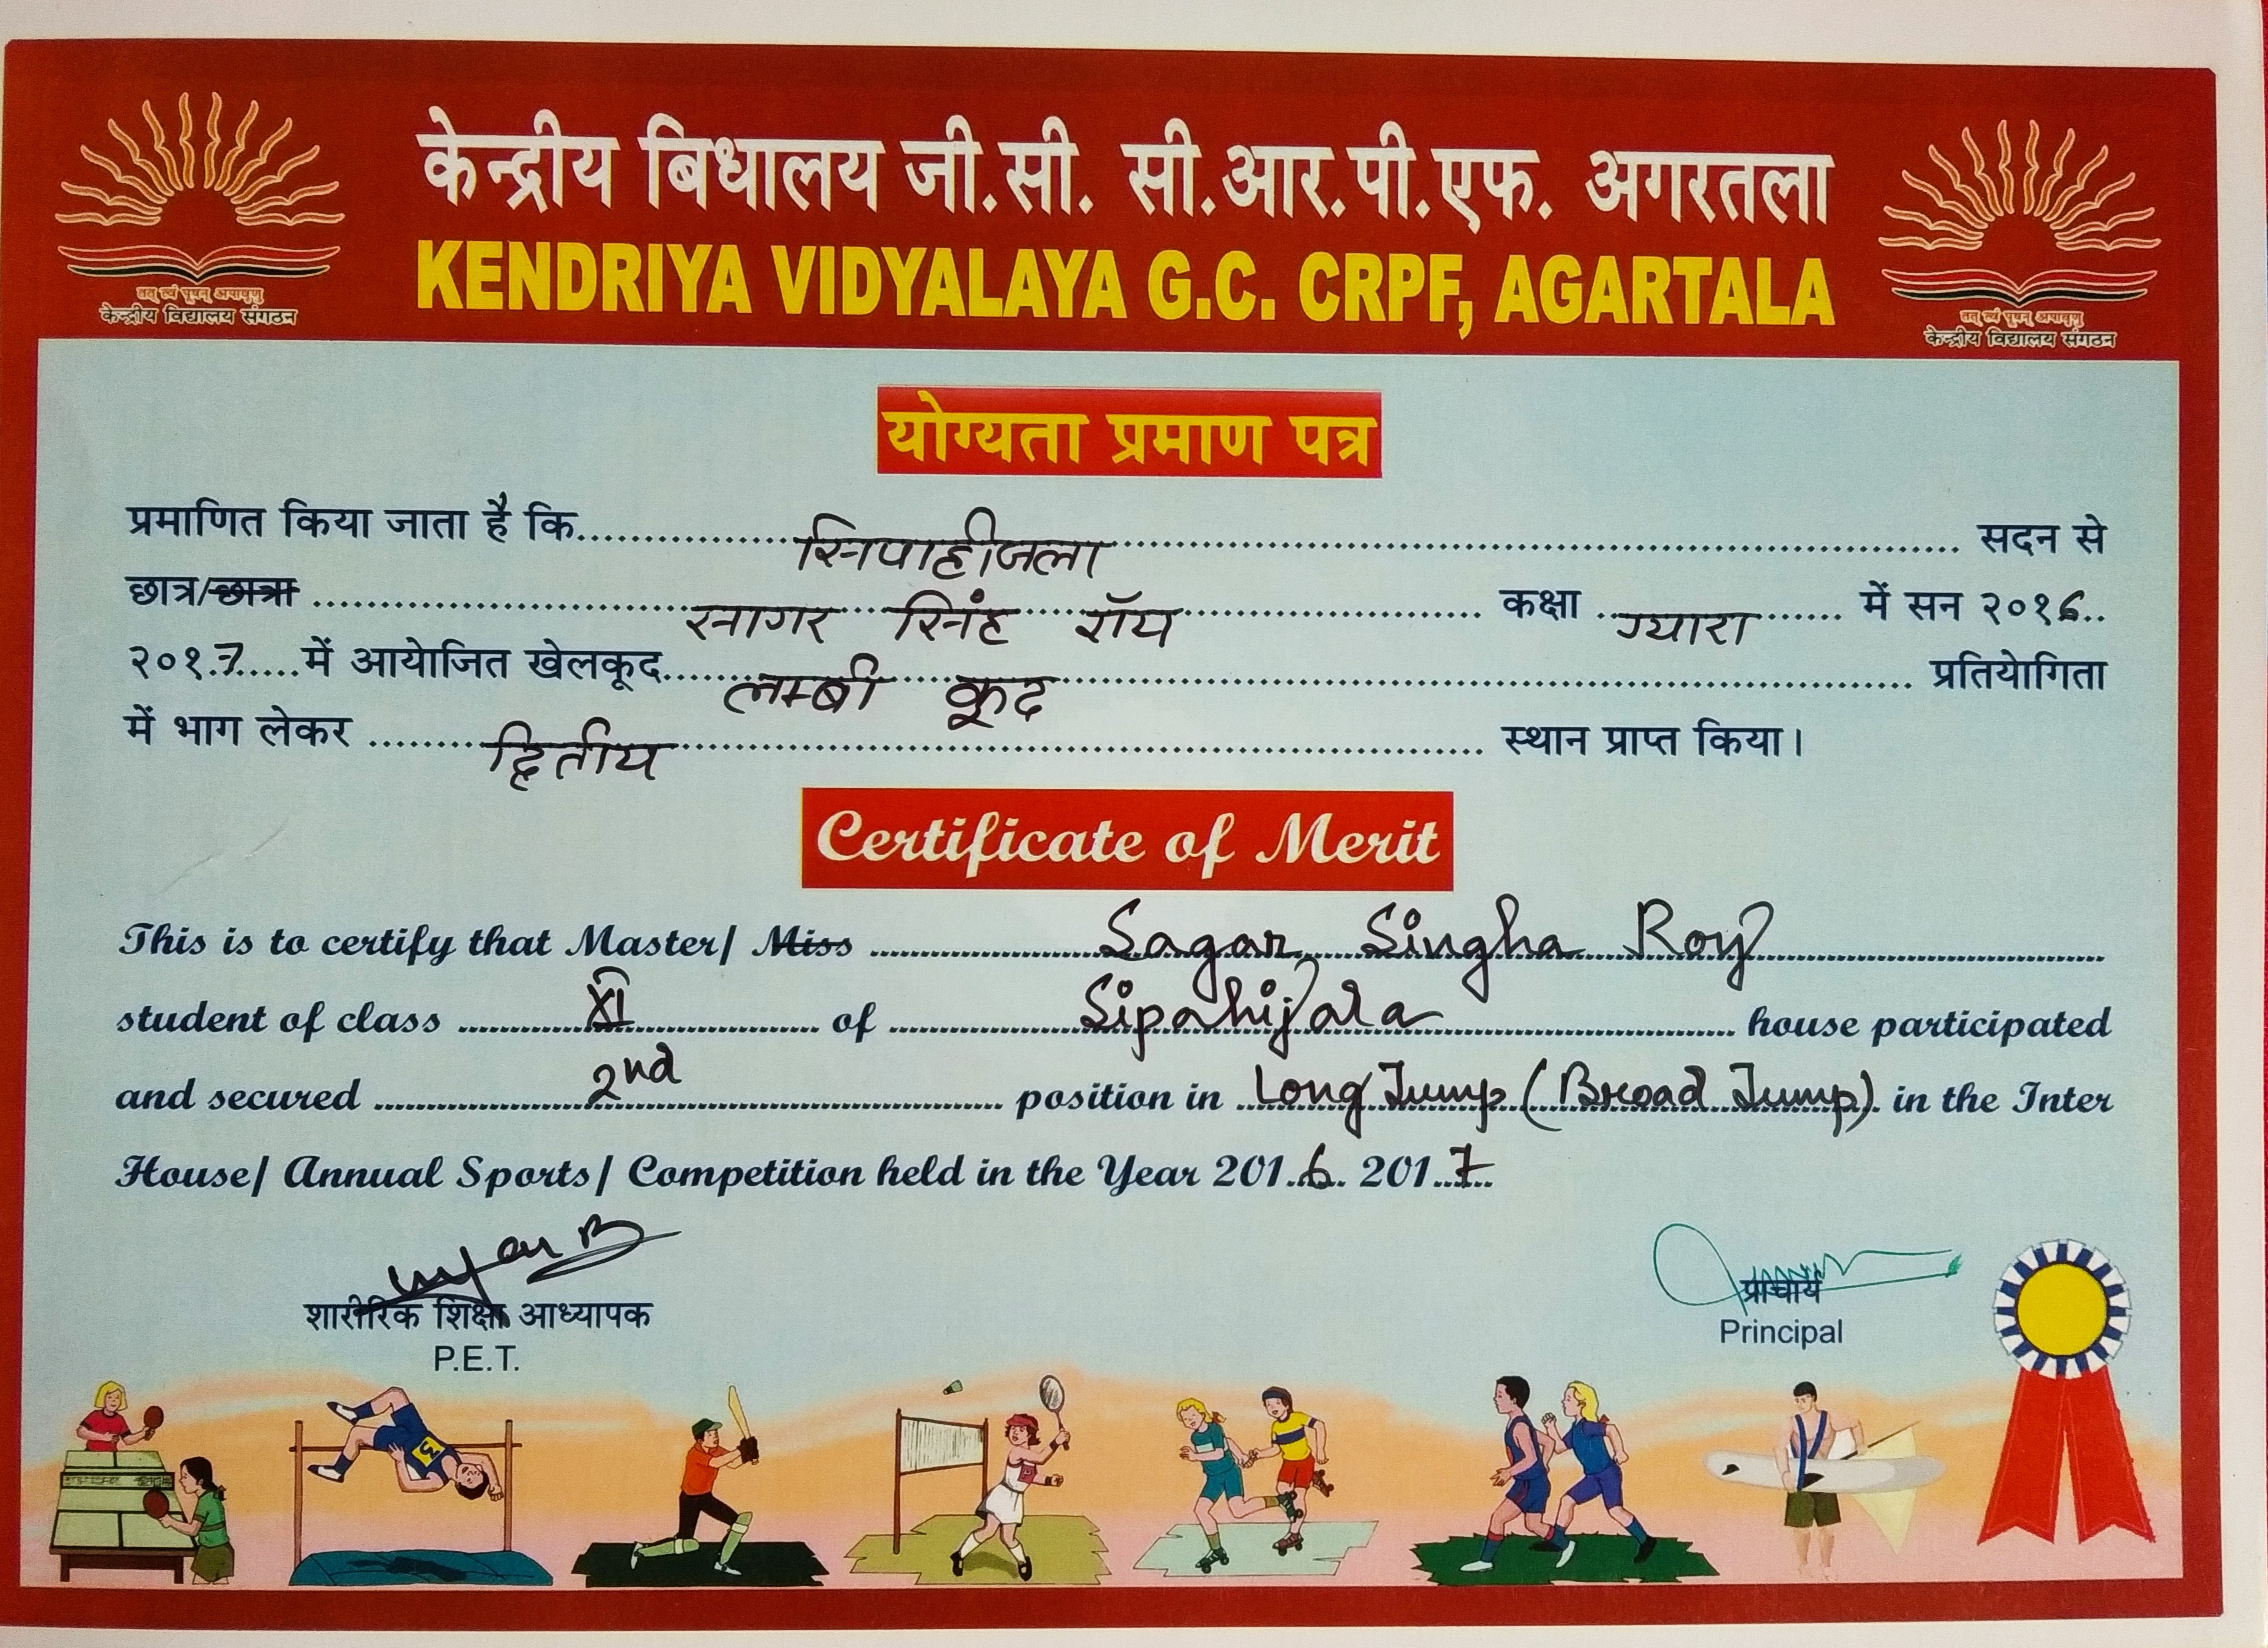 केन्द्रीय बिधालय जी.सी. सी.आर.पी.एफ. अगरतला
KENDRIYA VIDYALAYA G.C. CRPF, AGARTALA
तत् त्वं पूषन् अपावृणु
केन्द्रीय विद्यालय संगठन
तत् त्वं पूषन् अपावृणु
केन्द्रीय विद्यालय संगठन
योग्यता प्रमाण पत्र
प्रमाणित किया जाता है कि सिपाहीजला सदन से
छात्र/छात्रा सागर सिंह रॉय कक्षा ग्यारा में सन २०१6
२०१7 में आयोजित खेलकूद लम्बी कूद प्रतियोगिता
में भाग लेकर द्वितीय स्थान प्राप्त किया।
Certificate of Merit
This is to certify that Master/ Miss Sagar Singha Roy
student of class XI of Sipahijala house participated
and secured 2nd position in Long Jump (Broad Jump) in the Inter
House/ Annual Sports/ Competition held in the Year 2016 2017
शारीरिक शिक्षा आध्यापक
P.E.T.
प्राचार्य
Principal
3